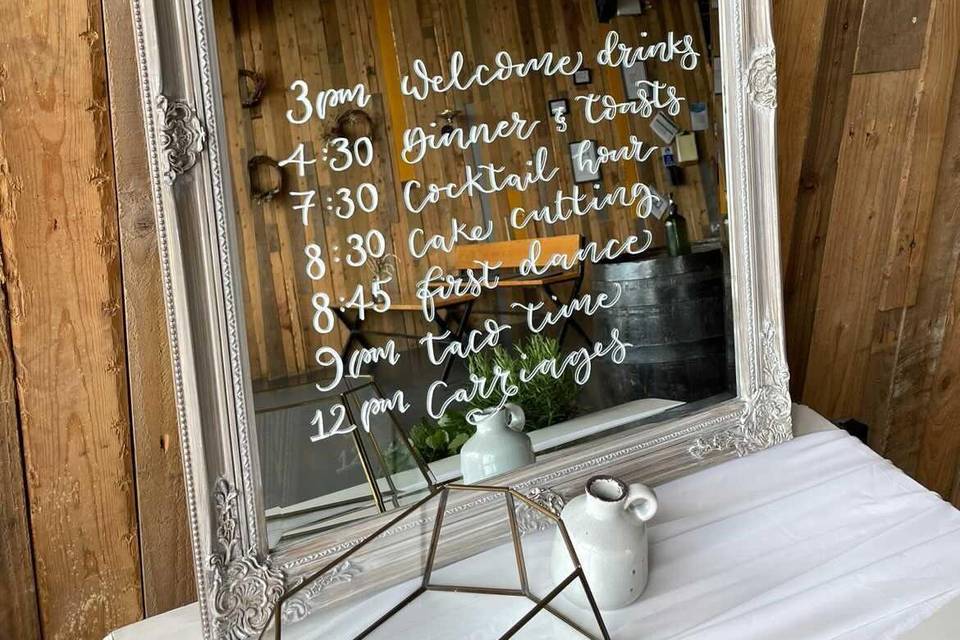 3pm Welcome drinks
4:30 Dinner & Toasts
7:30 Cocktail hour
8:30 Cake cutting
8:45 first dance
9pm taco time
12pm Carriages